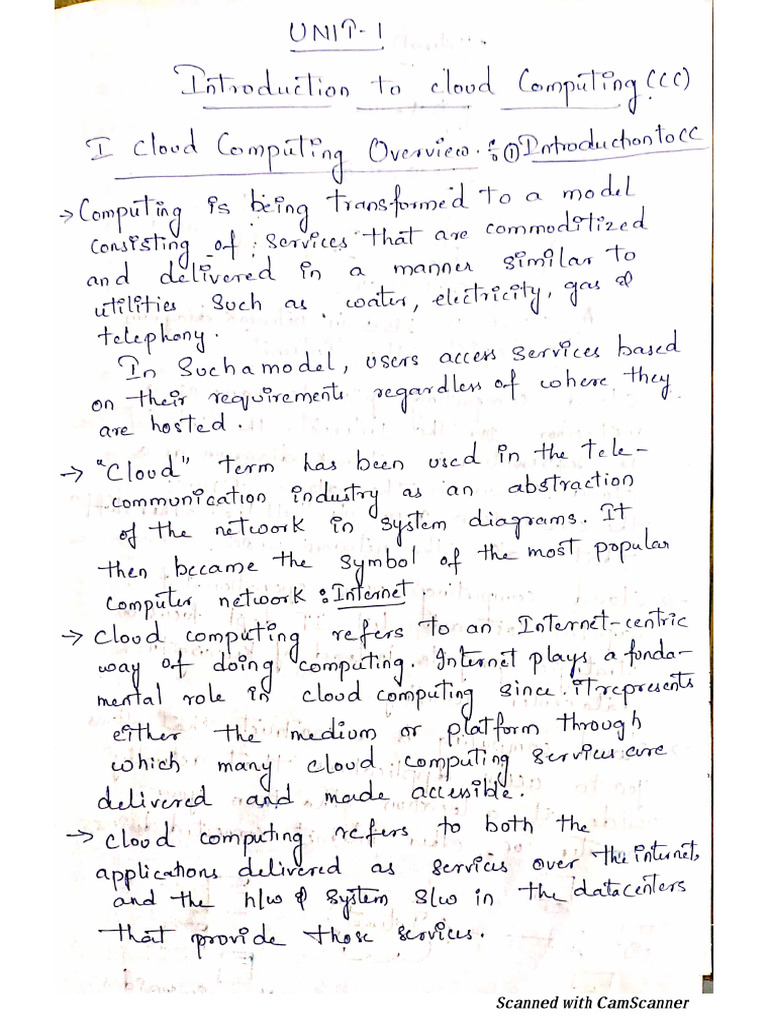 UNIT-1
Introduction to cloud Computing (CC)
I Cloud Computing Overview :- ① Introduction to CC
→ Computing is being transformed to a model
consisting of services that are commoditized
and delivered in a manner similar to
utilities such as water, electricity, gas &
telephony.
In such a model, users access services based
on their requirements regardless of where they
are hosted.
→ "Cloud" term has been used in the tele-
communication industry as an abstraction
of the network in system diagrams. It
then became the symbol of the most popular
computer network : Internet
→ Cloud computing refers to an Internet-centric
way of doing computing. Internet plays a funda-
mental role in cloud computing since it represents
either the medium or platform through
which many cloud computing services are
delivered and made accesible.
→ cloud computing refers to both the
applications delivered as services over the internet,
and the h/w & system s/w in the datacenters
that provide those services.
Scanned with CamScanner